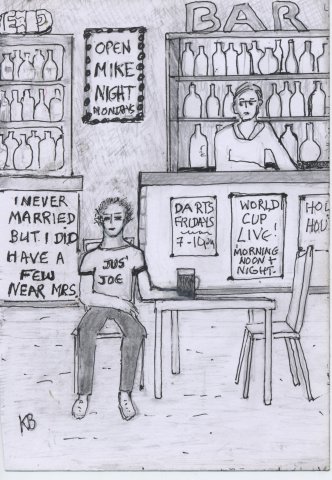 ED
BAR
OPEN
MIKE
NIGHT
MONDAYS
I NEVER
MARRIED
BUT I DID
HAVE A
FEW
NEAR MRS
JUS
JOE
DARTS
FRIDAYS
WORLD
CUP
LIVE!
MORNING
NOON +
NIGHT.
HO
HOU
KB